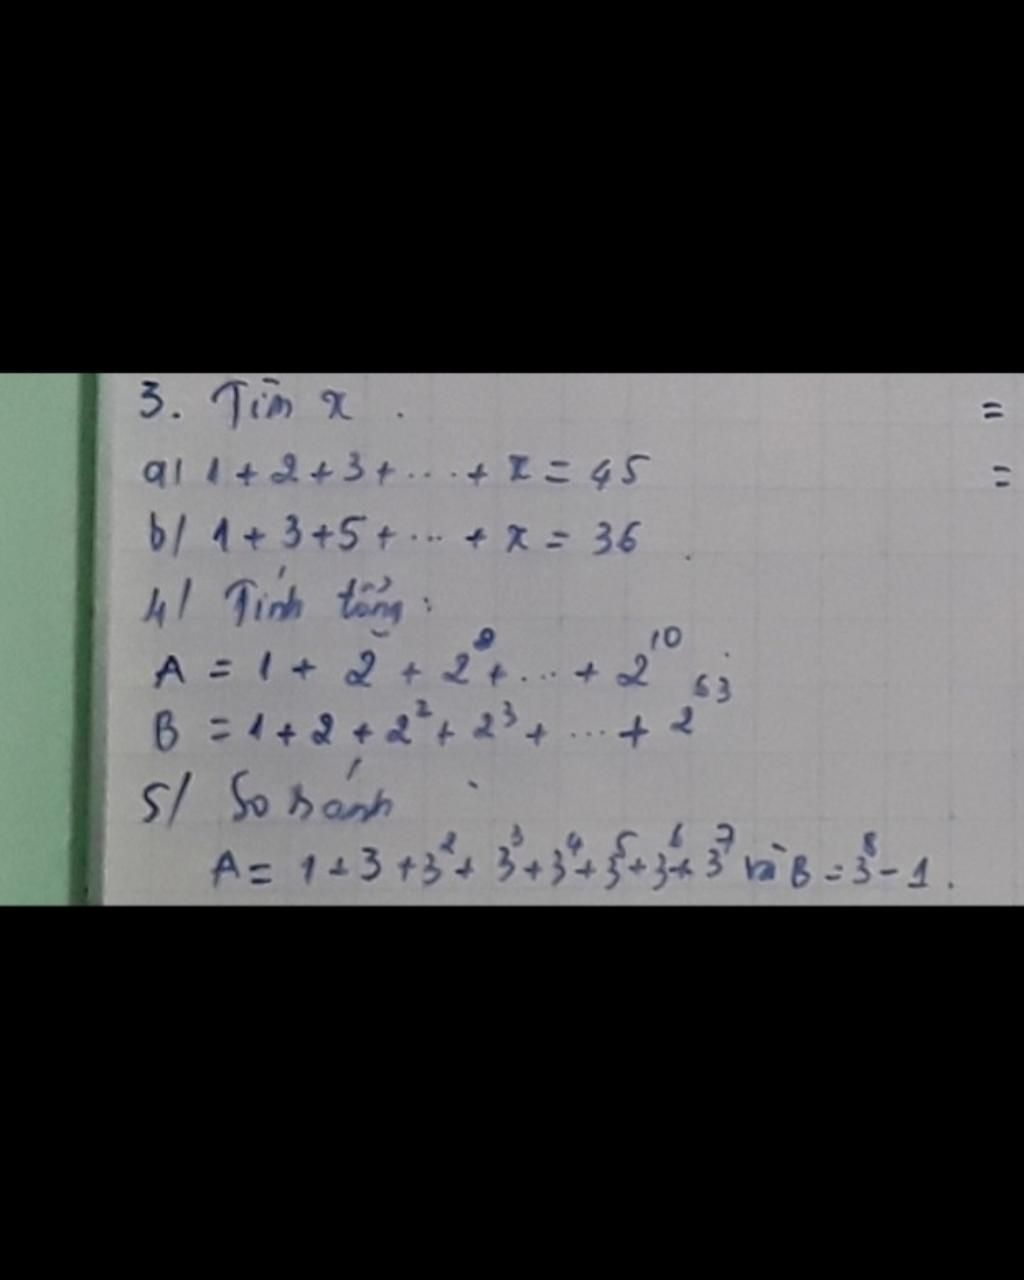 3. Tìm x. =
a/ 1 + 2 + 3 + ... + x = 45 =
b/ 1 + 3 + 5 + ... + x = 36
4/ Tính tổng:
A = 1 + 2 + 2² + ... + 2¹⁰
B = 1 + 2 + 2² + 2³ + ... + 2⁶³
5/ So sánh
A = 1 + 3 + 3² + 3³ + 3⁴ + 3⁵ + 3⁶ + 3⁷ và B = 3⁸ - 1.